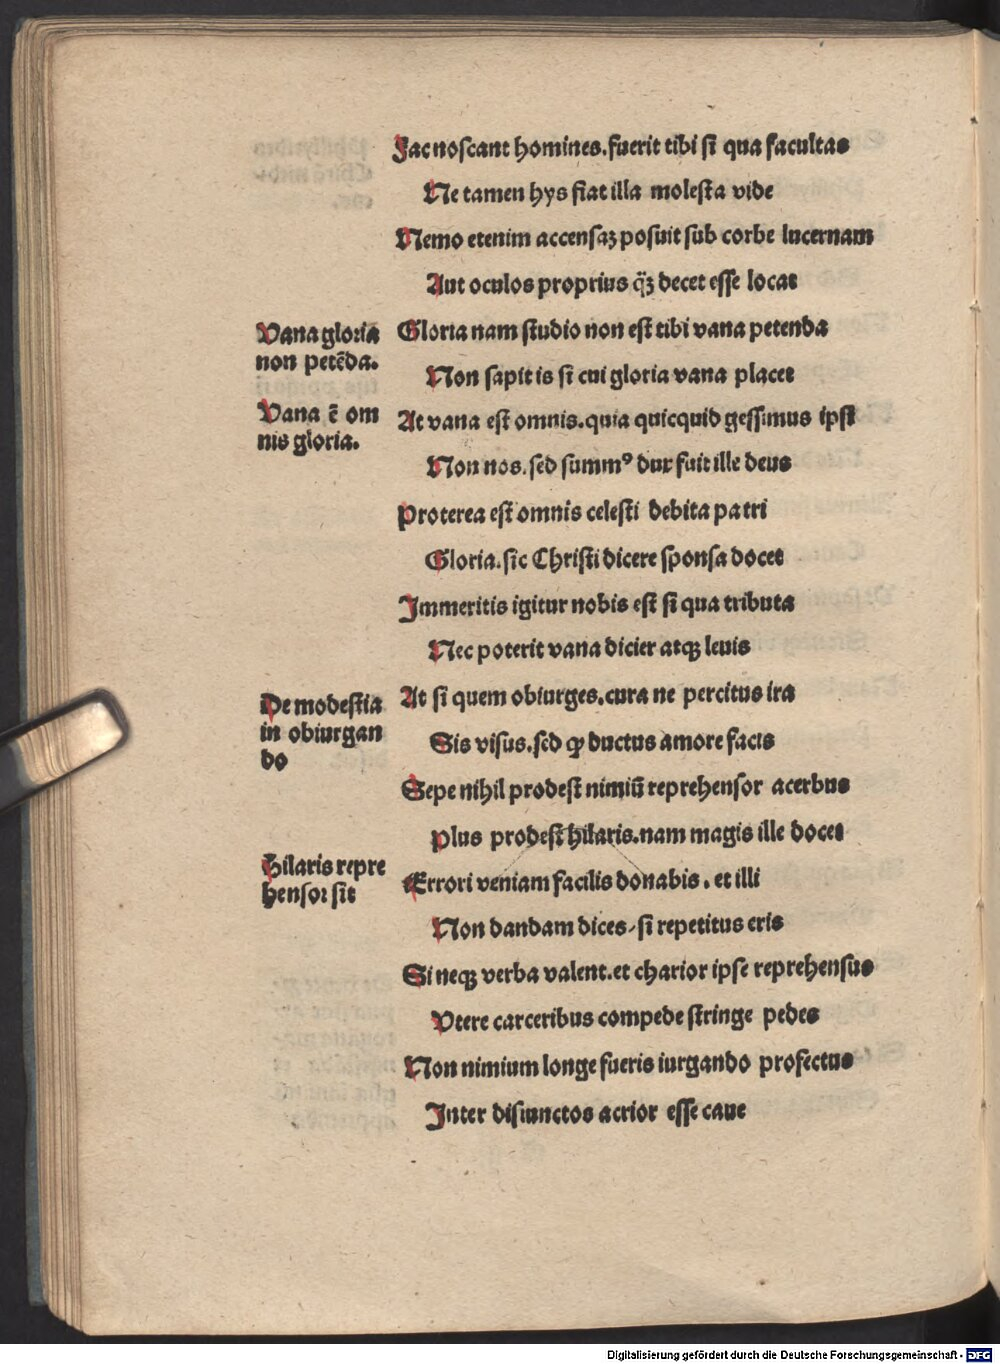 Fac noscant homines.fuerit tibi si qua facultas
Ne tamen hys fiat illa molesta vide
Nemo etenim accensaꝫ posuit sub corbe lucernam
Aut oculos proprius q̈ꝫ decet esse locat
Vana gloria
non petēda.
Gloria nam studio non est tibi vana petenda
Non sapit is si cui gloria vana placet
Vana ē om
nis gloria.
At vana est omnis.quia quicquid gessimus ipsi
Non nos.sed summꝰ dux fuit ille deus
Proterea est omnis celesti debita patri
Gloria.sic Christi dicere sponsa docet
Immeritis igitur nobis est si qua tributa
Nec poterit vana dicier atqꝫ leuis
De modestia
in obiurgan
do
At si quem obiurges.cura ne percitus ira
Sis visus.sed ꝙ ductus amore facis
Sepe nihil prodest nimiū reprehensor acerbus
Plus prodest hilaris.nam magis ille docet
Hilaris repre
hensor sit
Errori veniam facilis donabis.et illi
Non dandam dices/si repetitus eris
Si neqꝫ verba valent.et charior ipse reprehensus
Vtere carceribus compede stringe pedes
Non nimium longe fueris iurgando profectus
Inter disiunctos acrior esse caue
Digitalisierung gefördert durch die Deutsche Forschungsgemeinschaft - DFG